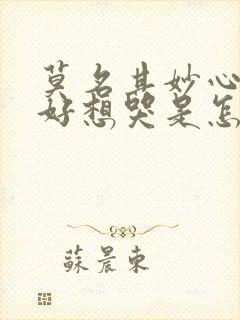 莫名其妙心
好想哭是怎
蘇晨東